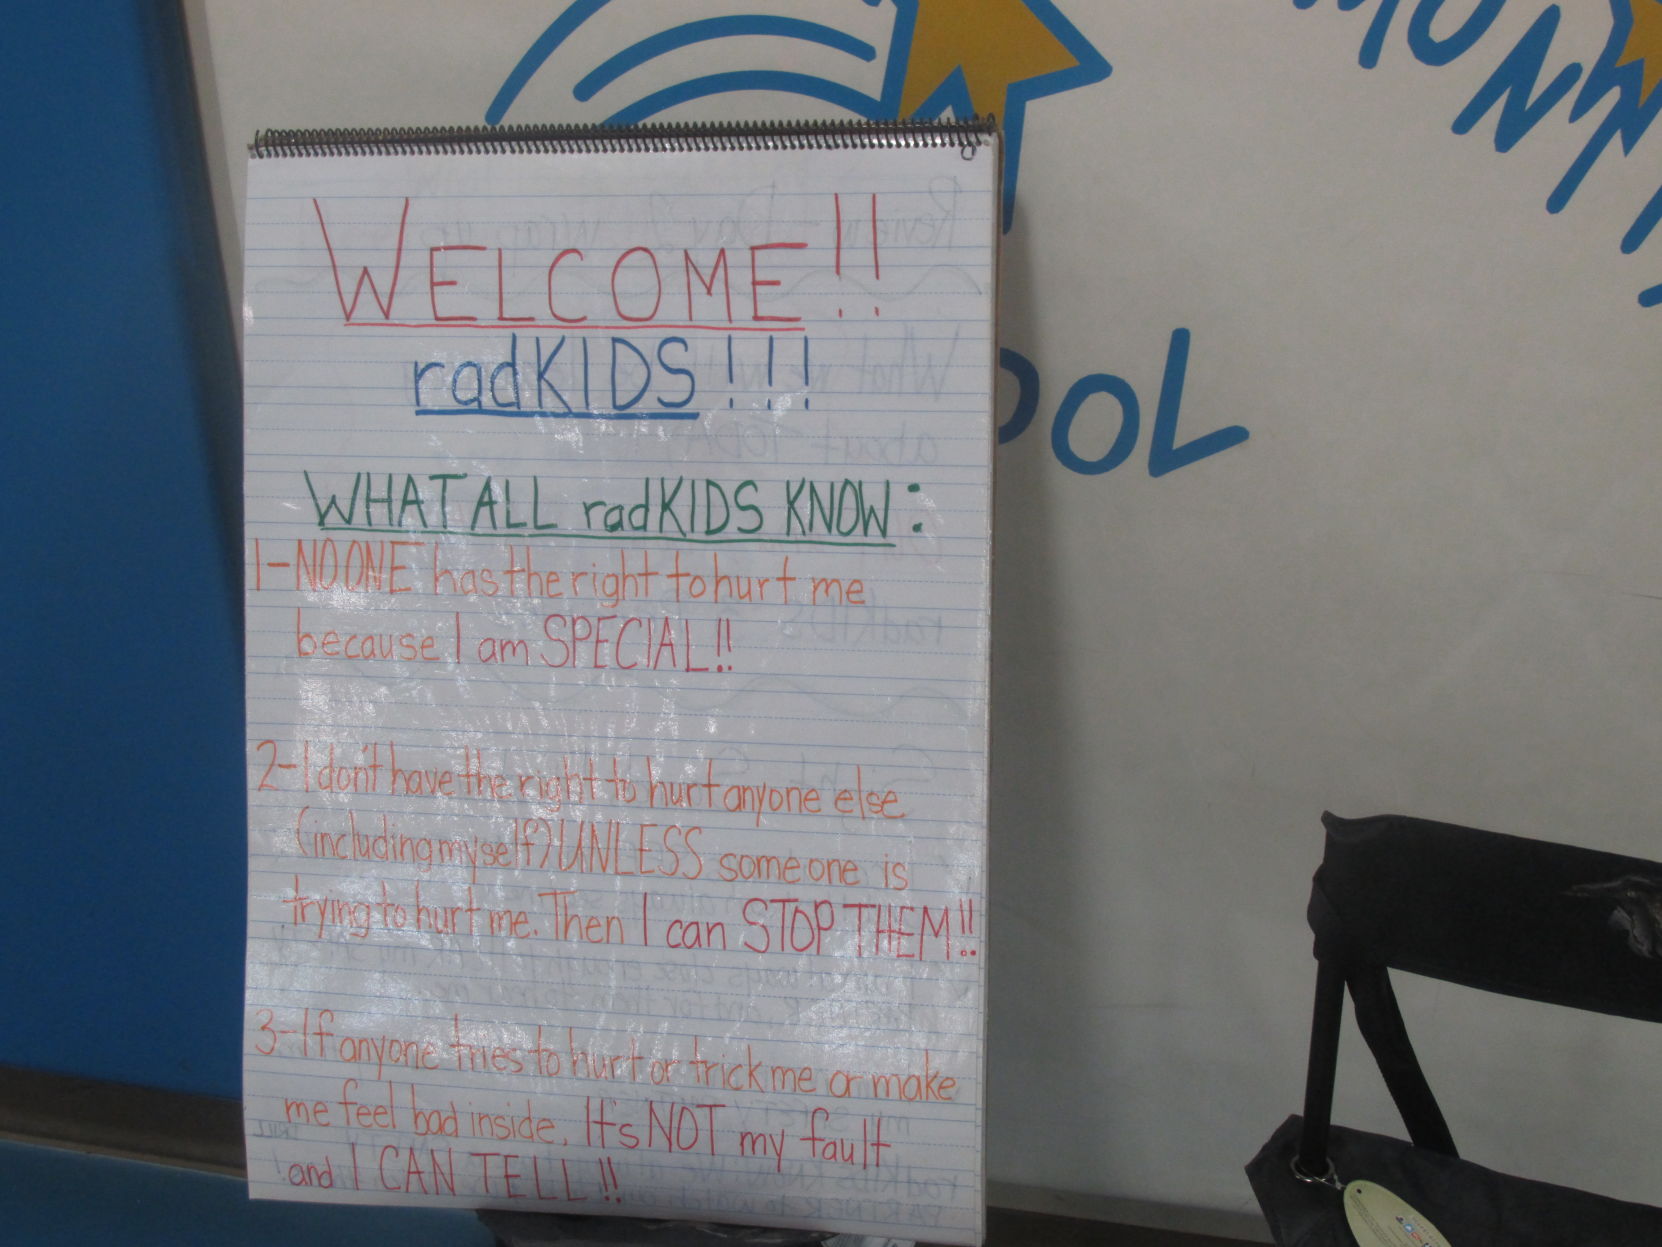 WELCOME!!
radKIDS!!!
WHAT ALL radKIDS KNOW:
1-NO ONE has the right to hurt me
because I am SPECIAL!!
2-I don't have the right to hurt anyone else
(including myself) UNLESS someone is
trying to hurt me. Then I can STOP THEM!!
3-If anyone tries to hurt or trick me or make
me feel bad inside. It's NOT my fault
and I CAN TELL!!
OOL